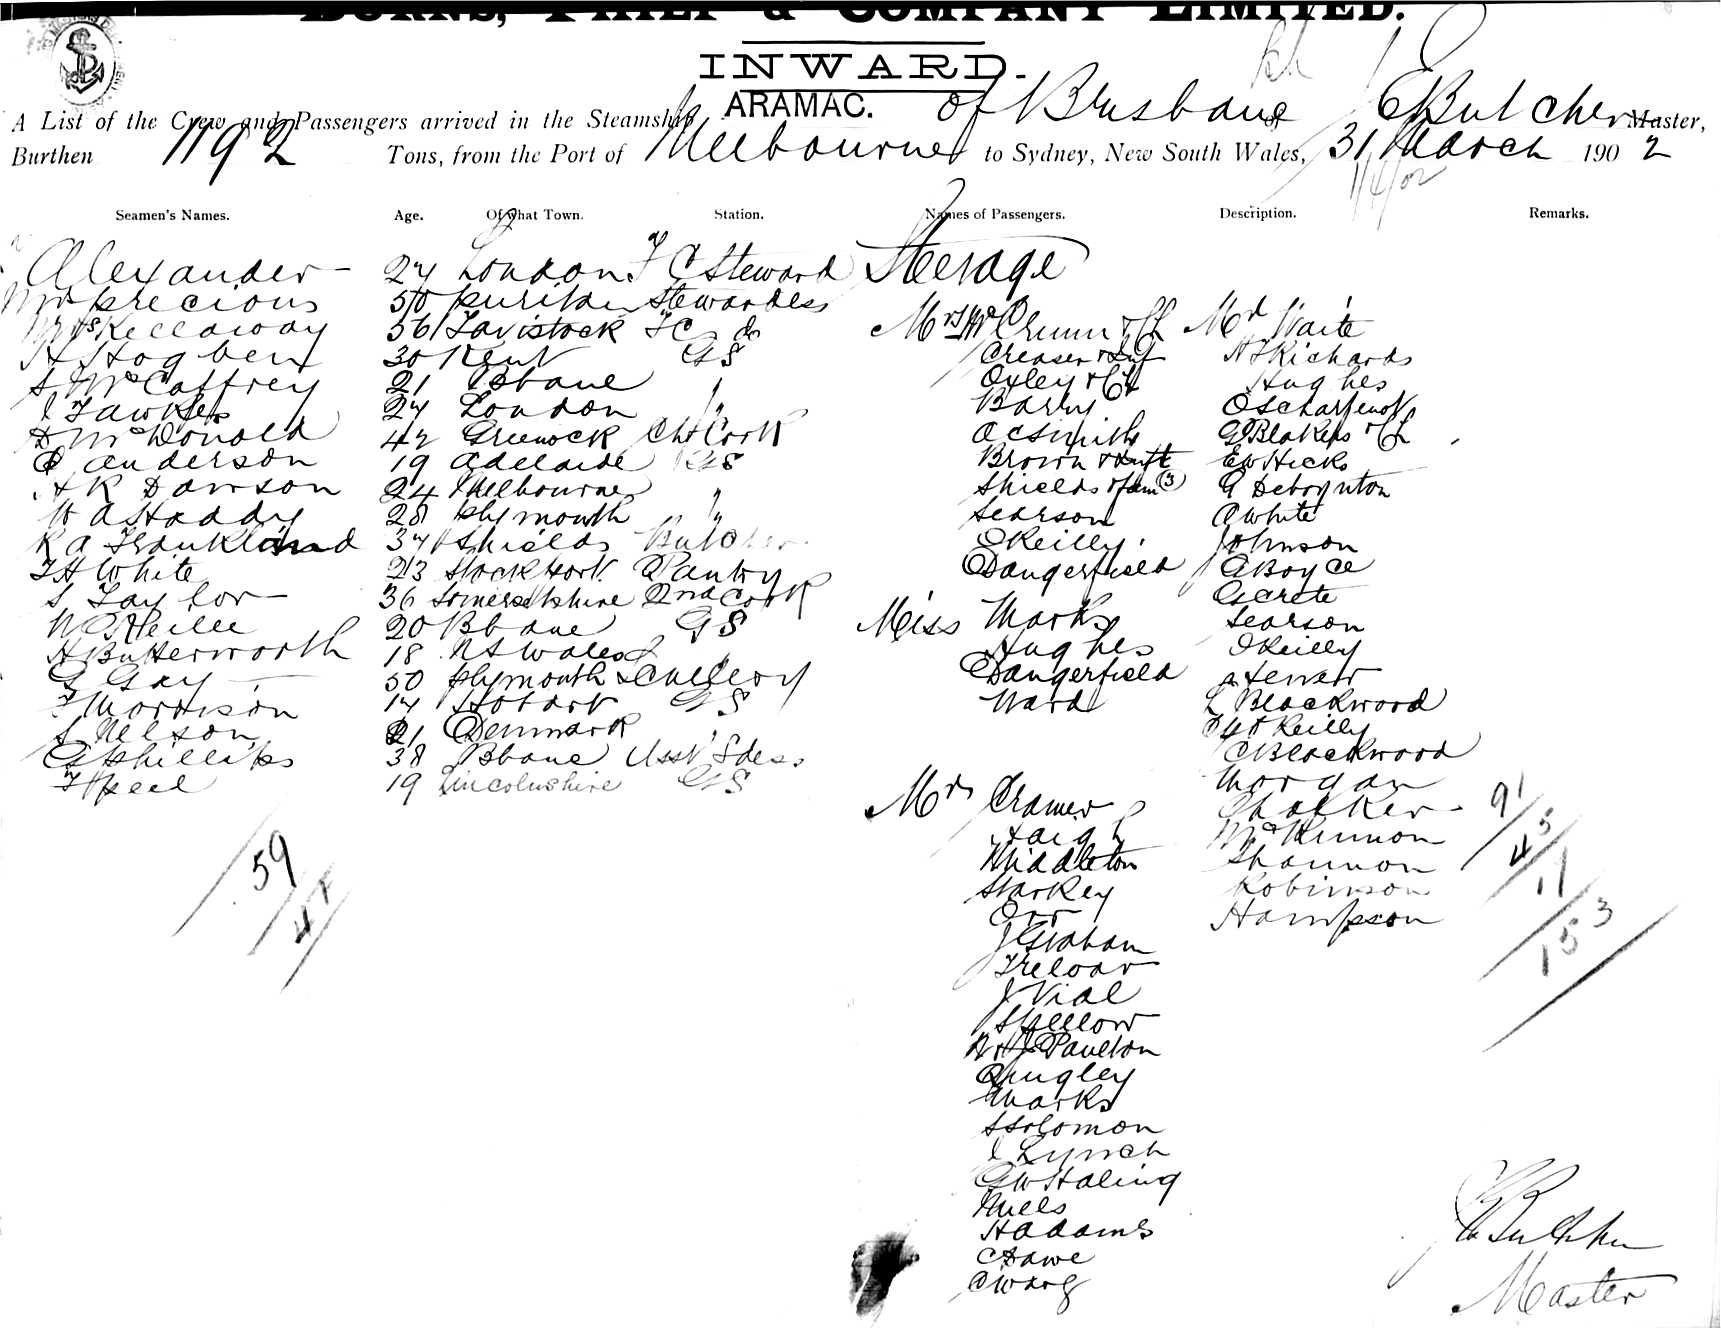 BURNS, PHILP & COMPANY LIMITED.
INWARD.
A List of the Crew and Passengers arrived in the Steamship ARAMAC. of Brisbane E Butcher Master,
Burthen 1192 Tons, from the Port of Melbourne to Sydney, New South Wales, 31 March 1902
1/4/02
Seamen's Names. Age. Of what Town. Station. Names of Passengers. Description. Remarks.
Alexander 27 London F C Steward
Mrs Precious 50 Stewardess
Mrs Kellaway 56 Tavistock FC do
H Hogben 30 Kent GS
S McCaffrey 21 Bbane "
J Fawkes 24 London "
D McDonald 42 Greenock Chf Cook
C Anderson 19 Adelaide GS
A R Dawson 24 Melbourne "
W A Haddy 28 Plymouth "
R A Frankland 37 Shields Butcher
F H White 23 Pantry
S Taylor 36 Somersetshire 2nd Cook
W O'Reilly 20 Bbane GS
H Butterworth 18 N S Wales "
G Gay 50 Plymouth Scullery
F Morrison 17 Hobart GS
S Nelson 21 Denmark "
G Phillips 38 Bbane Asst Sdess
F Peel 19 Lincolnshire GS
59
47
Steerage
Mrs McCrumm & Ch
Creaser & Inf
Oxley & Ch
Barry
A C Smith
Brown & Inft
Shields & fam (3)
Searson
O'Reilly
Dangerfield
Miss Marks
Hughes
Dangerfield
Ward
Mr Cramer
Haigh
Middleton
Starkey
Orr
J Graham
Treloar
J Vial
Shellow
Paulton
Quigley
Marks
S Solomon
J Lynch
G W Haling
Mills
H Adams
C Hawe
C Ward
Mr Waite
H J Richards
Hughes
G Blakers & Ch
E W Hicks
G Deboynton
A White
Johnson
C A Boyce
Searson
O'Reilly
L Blackwood
O'Reilly
C Blackwood
Morgan
Chalker
McKinnon
Shannon
Robinson
Hampson
91
45
17
153
E Butcher
Master